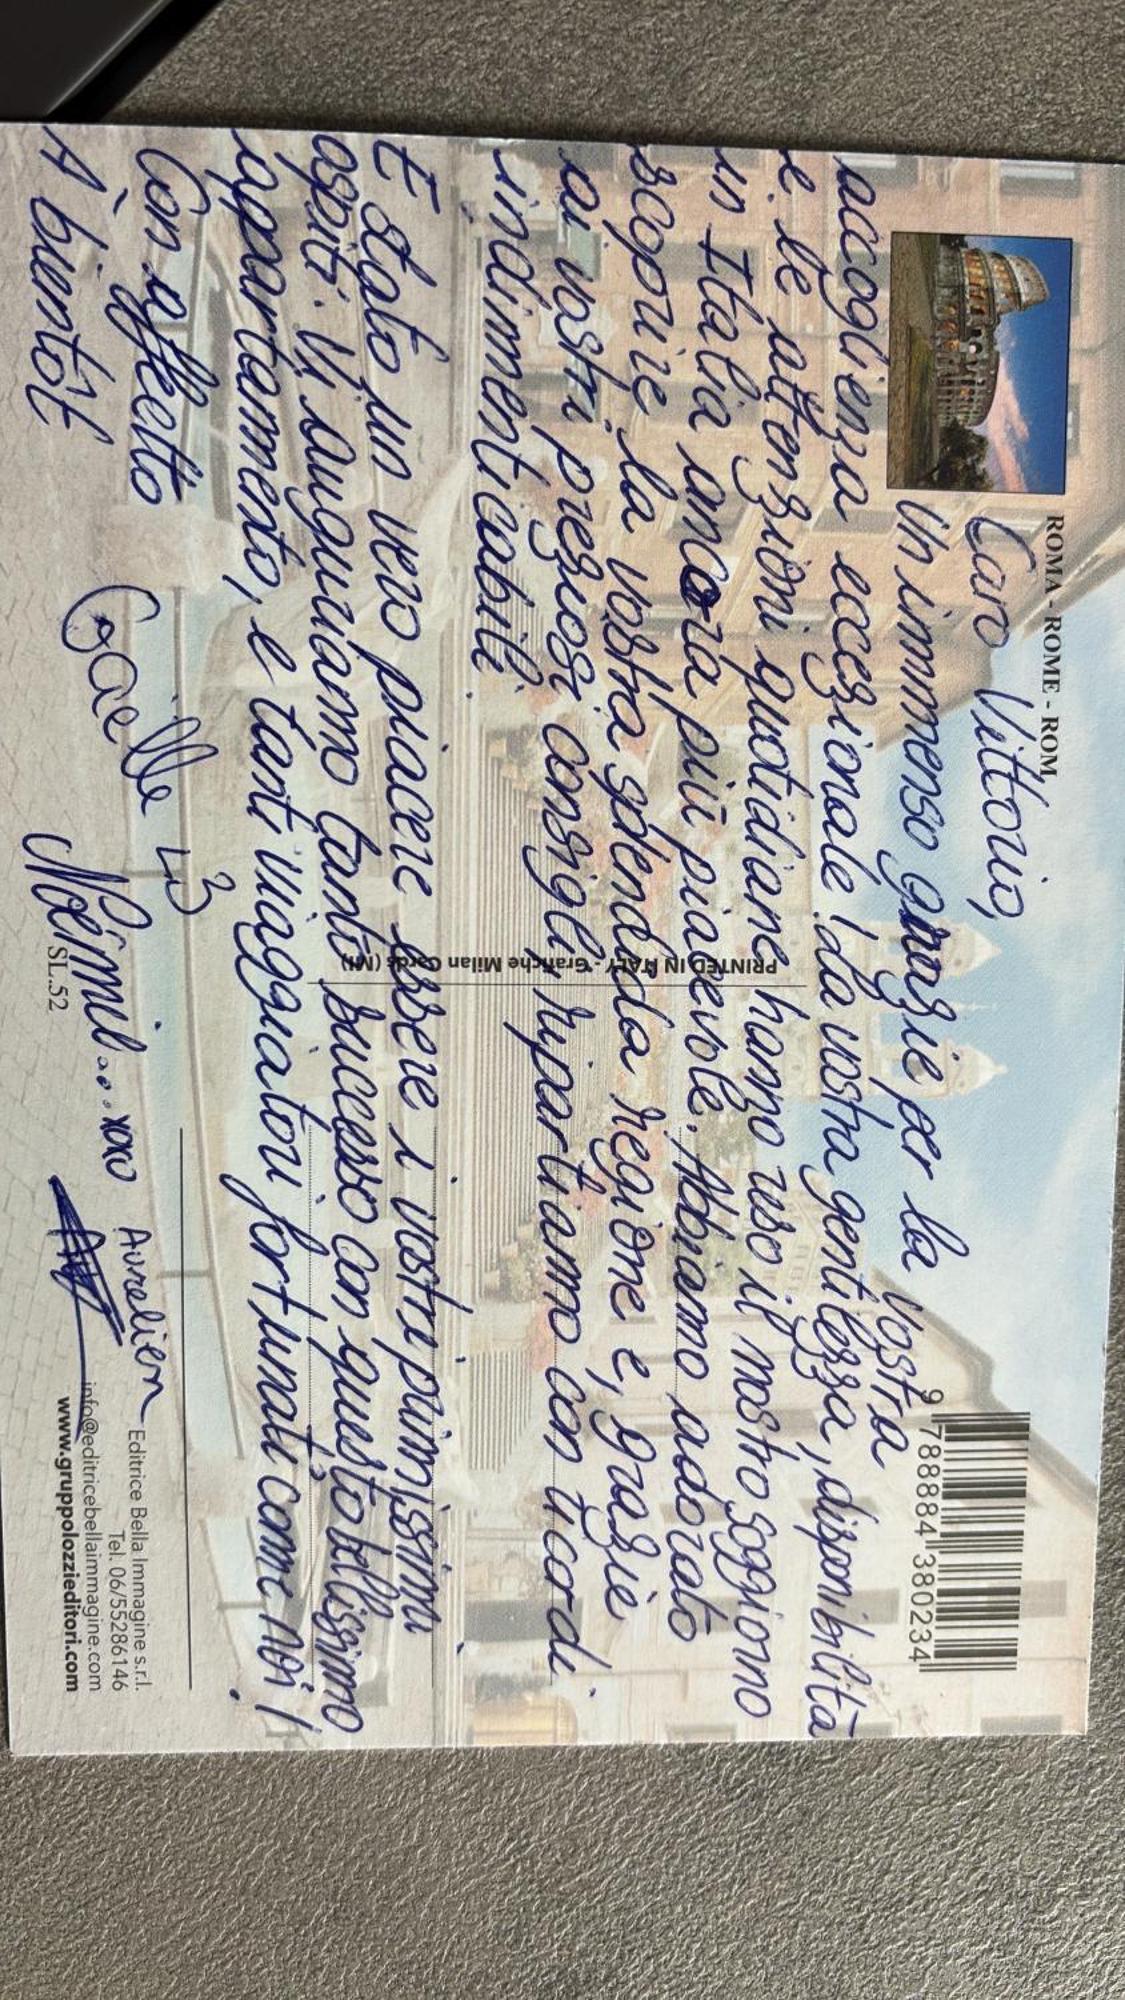 ROMA - ROME - ROM
Caro Vittorio,
Un immenso grazie per la vostra
accoglienza eccezionale! La vostra gentilezza, disponibilità
e le attenzioni quotidiane hanno reso il nostro soggiorno
in Italia ancora più piacevole. Abbiamo adorato
scoprire la vostra splendida regione e, grazie
ai vostri preziosi consigli, ripartiamo con ricordi
indimenticabili.
È stato un vero piacere essere i vostri primissimi
ospiti. Vi auguriamo tanto successo con questo bellissimo
appartamento, e tanti viaggiatori fortunati come noi!
Con affetto
À bientôt
Gaëlle
Noémie... xoxo
Aurelien
9 788884 380234
PRINTED IN ITALY - Grafiche Milan Cards (MI)
SL.52
Editrice Bella Immagine s.r.l.
Tel. 06/55286146
info@editricebellaimmagine.com
www.gruppolozzieditori.com